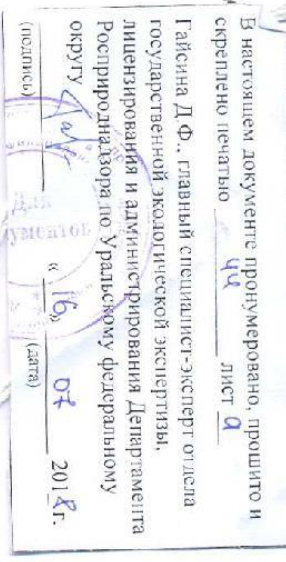 В настоящем документе пронумеровано, прошито и
скреплено печатью 44 лист а
Гайсина Д.Ф., главный специалист-эксперт отдела
государственной экологической экспертизы,
лицензирования и администрирования Департамента
Росприроднадзора по Уральскому федеральному
округу
(подпись)
« 16 » 07 2018 г.
(дата)
Для
документов